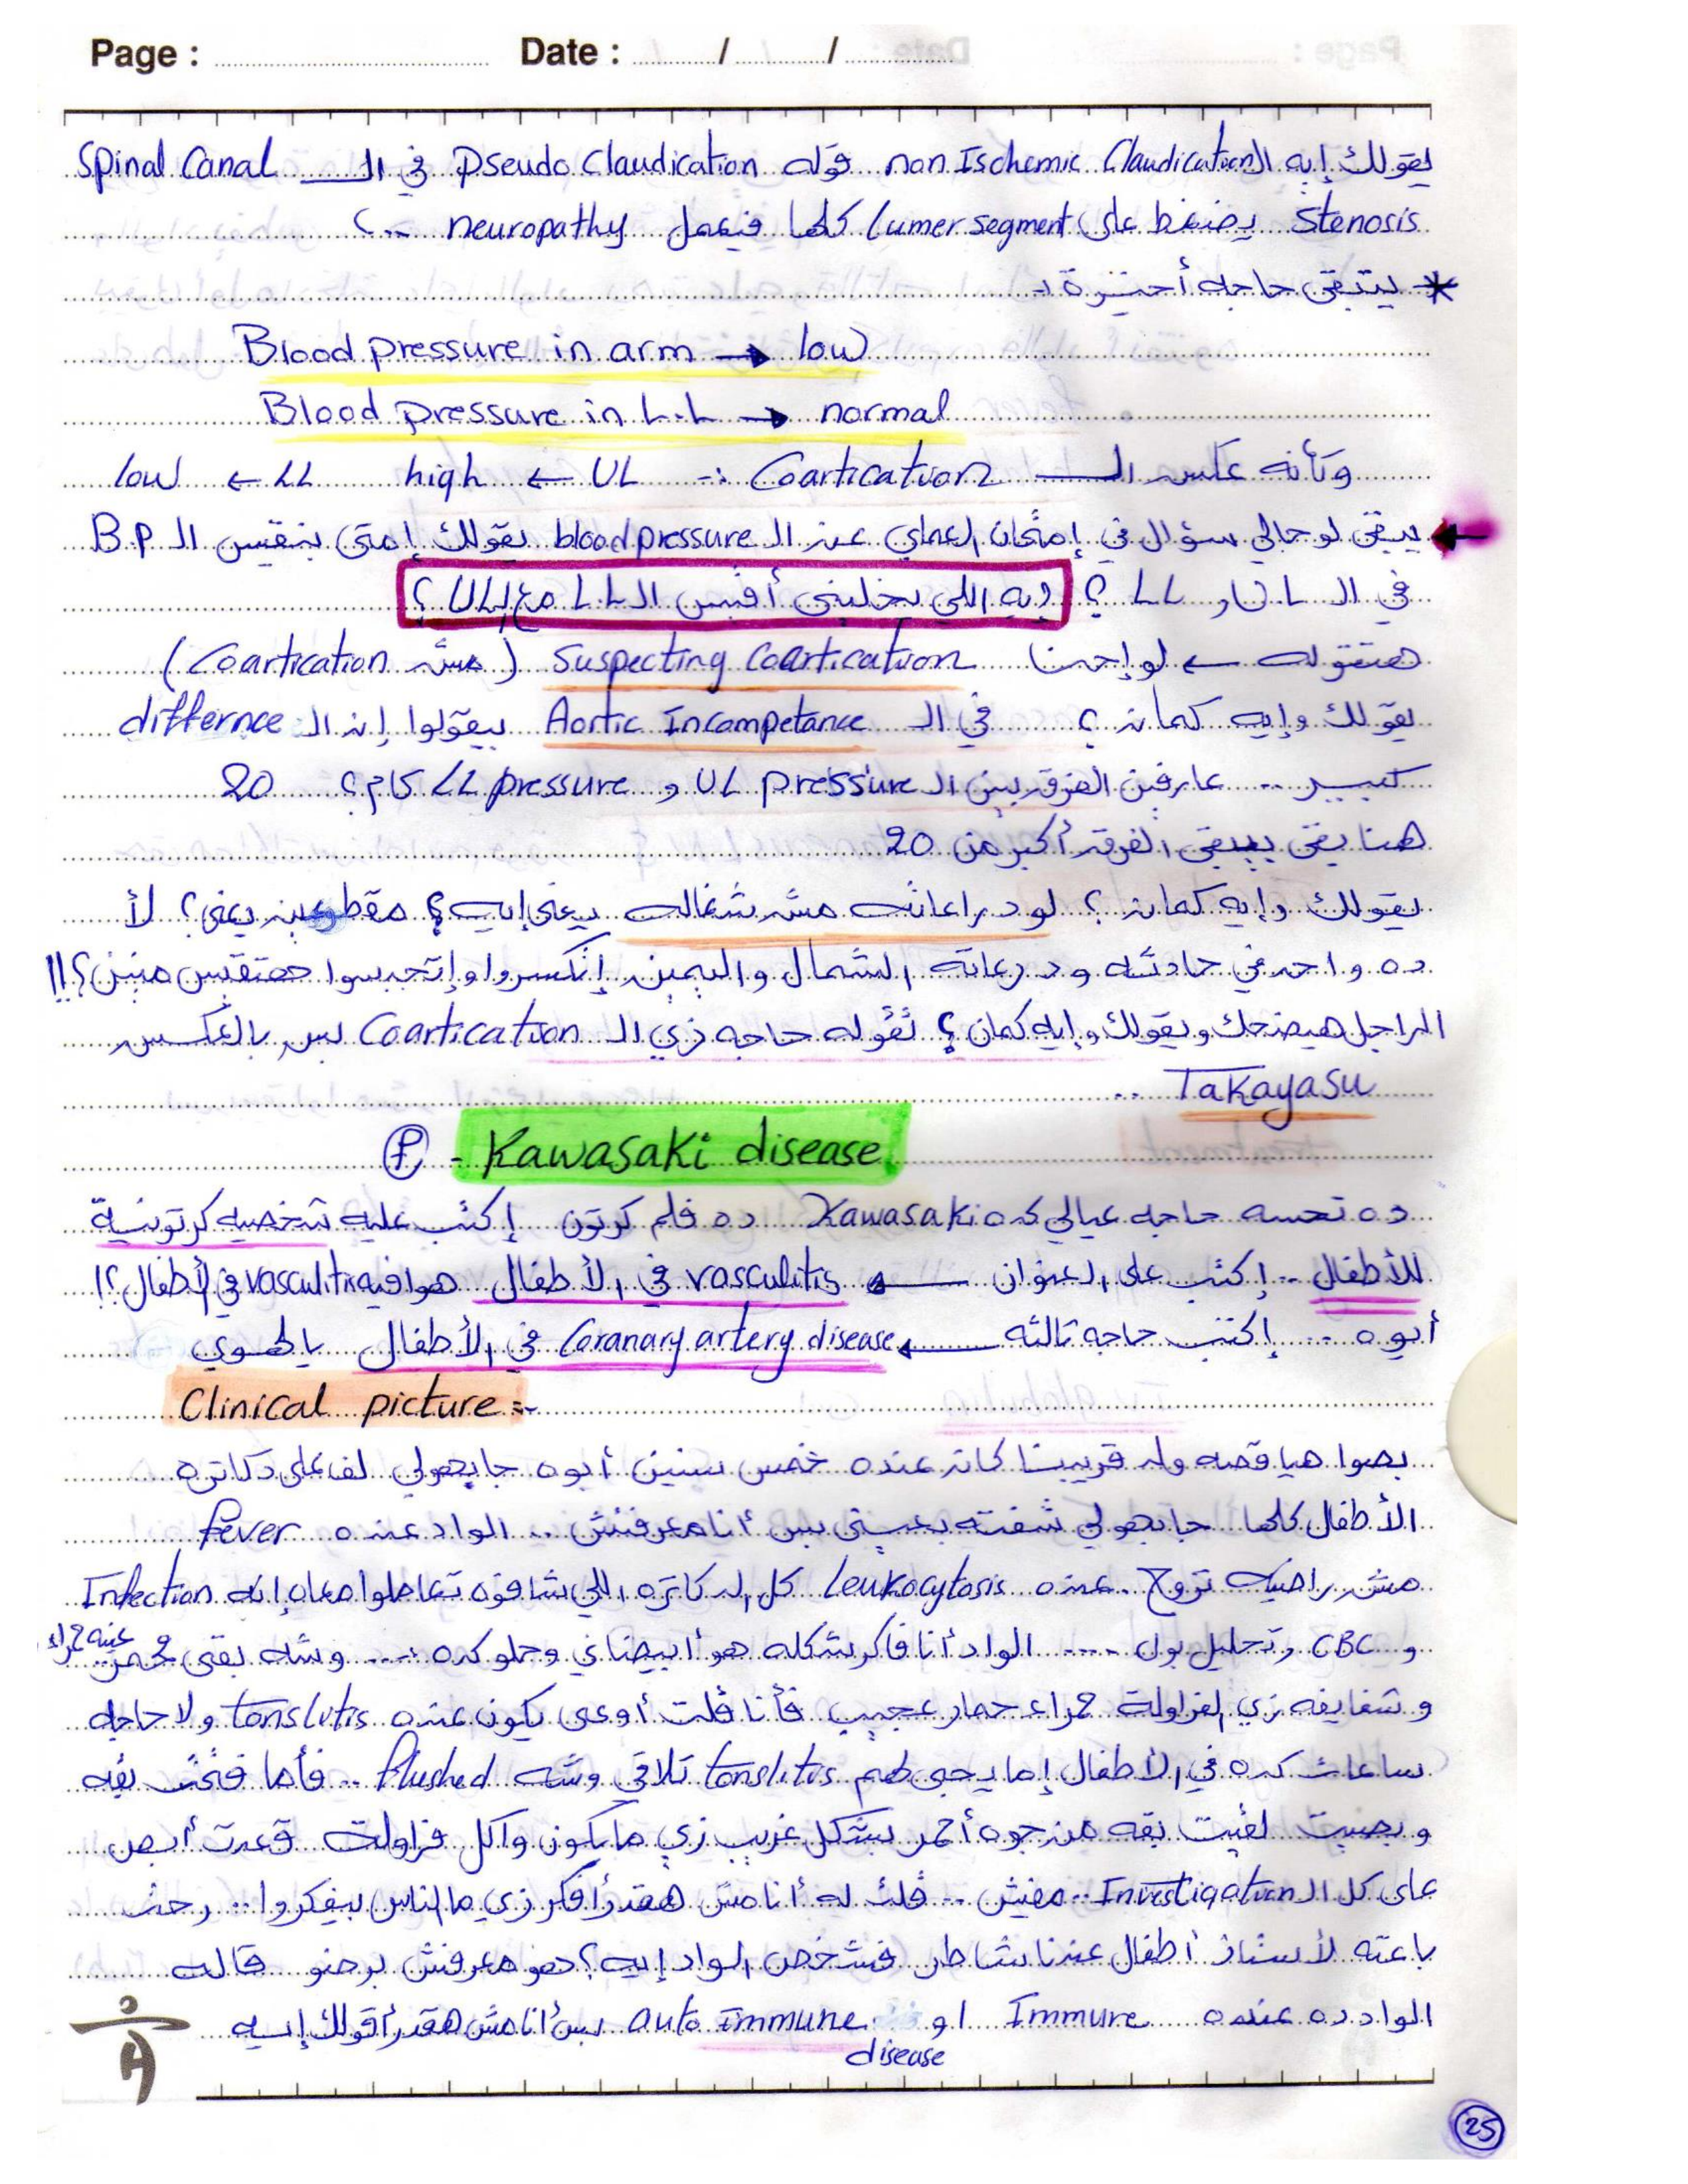 Page : Date : / /
يقولك إيه الـ non Ischemic Claudication قوله pseudo Claudication في الـ Spinal Canal
Stenosis يضغط على lumer segment كلها فيعمل neuropathy ..
* يتبقى حاجه أخيرة :-
Blood pressure in arm → low
Blood pressure in L.L → normal
وكأنه عكس الـ Coartication :- UL ← high LL ← low
← يبقى لو جالي سؤال في إمتحان العملي عن الـ blood pressure يقولك إمتى بنقيس الـ B.P
في الـ UL و LL ؟ إيه اللي يخليني أقيس الـ LL مع الـ UL ؟
هتقوله ← لو إحنا Suspecting Coartication ( مش Coartication )
يقولك وإيه كمان ؟ في الـ Aortic Incompetance بيقولوا إن الـ differnce
كبير .. عارفين الفرق بين الـ UL pressure و LL pressure كام ؟ 20
هنا يقى بيبقى الفرق أكبر من 20
يقولك وإيه كمان ؟ لو دراعاته مش شغاله يعني إيه ؟ مقطوعين يعني ؟ لأ
ده واحد في حادثه ودرعاته الشمال واليمين إنكسروا وإتجبسوا هتقيس منين ؟!!
الراجل هيضحك ويقولك وإيه كمان ؟ تقوله حاجه زي الـ Coartication بس بالعكس
Takayasu ..
f - Kawasaki disease
ده تحسه حاجه عيالي كده Kawasaki ده فلم كرتون إكتب عليه شخصيه كرتونية
للأطفال .. إكتب على العنوان ← vasculitis في الأطفال هو فيه vasculitis في أطفال ؟!
أيوه .... إكتب حاجه تالته ← Coranary artery disease في الأطفال يالهوي
Clinical picture :-
بصوا هيا قصه ولد قريبنا كان عنده خمس سنين أبوه جايبهولي لف على دكاتره
الأطفال كلها جابهولي شفته بعيني بس أنا معرفتش .. الواد عنده fever
مش راضيه تروح . عنده Leukocytosis كل الدكاتره اللي شافوه تعاملوا معاه إنه Infection
و CBC وتحليل بول .... الواد أنا فاكر شكله هو أبيضاني وحلو كده .... وشه بقى محمر و عنيه حمراء
وشفايفه زي الفراولة حمراء حمار عجيب فأنا قلت أوعى يكون عنده tonslitis ولا حاجه
ساعات كده في الأطفال إما يجي لهم tonslitis تلاقي وشه flushed .. فأما فتحت بقه
وبصيت لقيت بقه من جوه أحمر بشكل غريب زي ما يكون واكل فراولة قعدت أبص
على كل الـ Investigation .. مفيش .. قلت له أنا مش هقدر أفكر زي ما الناس بيفكروا .. رحت
باعته لأستاذ أطفال عندنا شاطر فشخص الواد إيه ؟ هو معرفش برضو قاله
الواد ده عنده Immure او auto immune disease بس أنا مش هقدر أقولك إيه
25